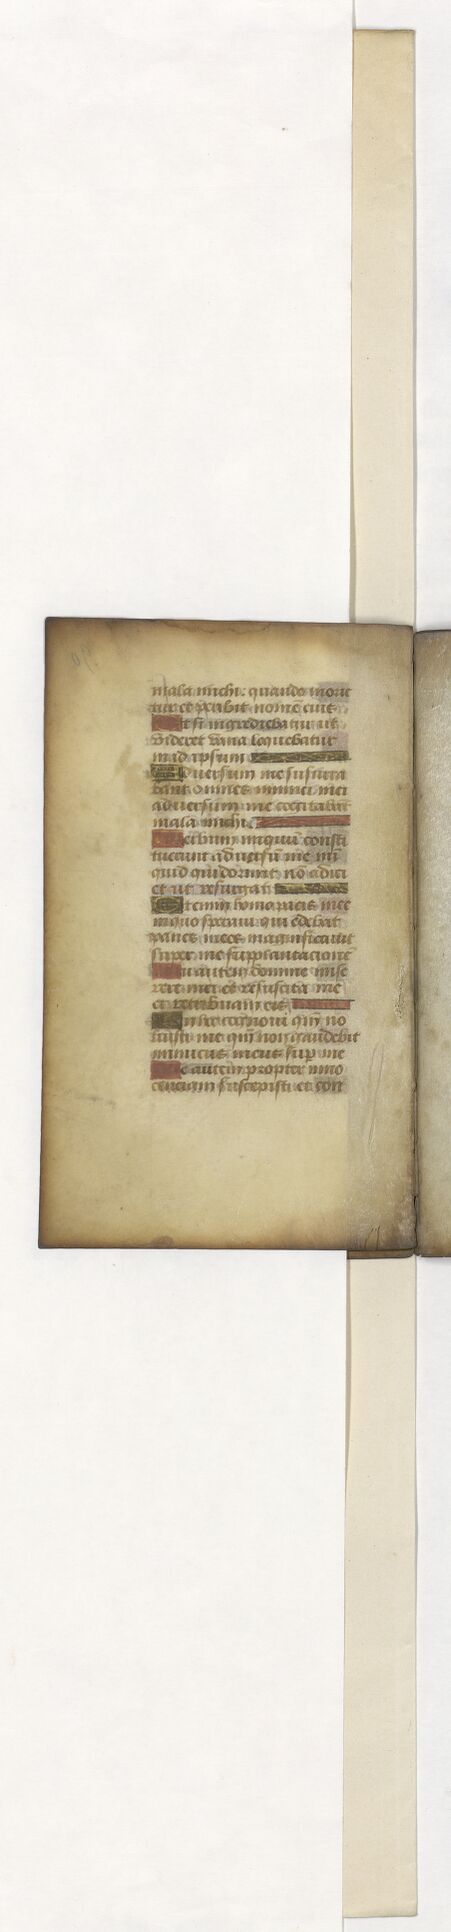 mala michi: quando morie
tur et peribit nomē eius
Et si ingrediebatur ut
videret vana loquebatur
in id ipsum
Aduersum me susurra
bant omnes inimici mei
aduersum me cogitabāt
mala michi
Verbum iniquū consti
tuerunt aduersū me nū
quid qui dormit nō adici
et ut resurgat
Etenim homo pacis mee
in quo speraui qui edebat
panes meos magnificauit
super me supplantacionē
Tu autem domine mise
rere mei et resuscita me
et retribuam eis
In hoc cognoui qm̄ uo
luisti me qm̄ non gaudebit
inimicus meus sup me
Me autem propter inno
cenciam suscepisti et con